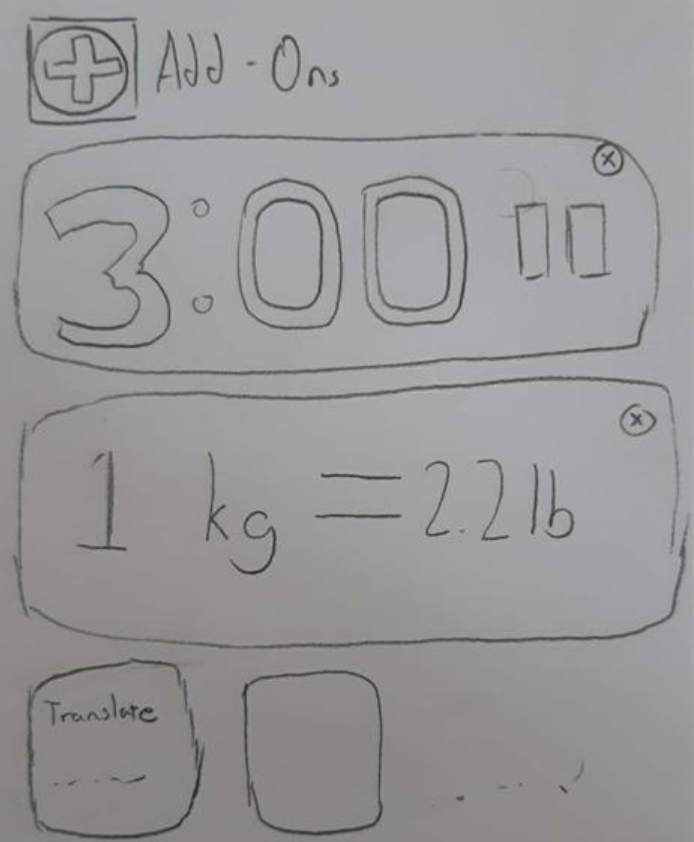 Add-Ons
3:00
1 kg = 2.2 lb
Translate